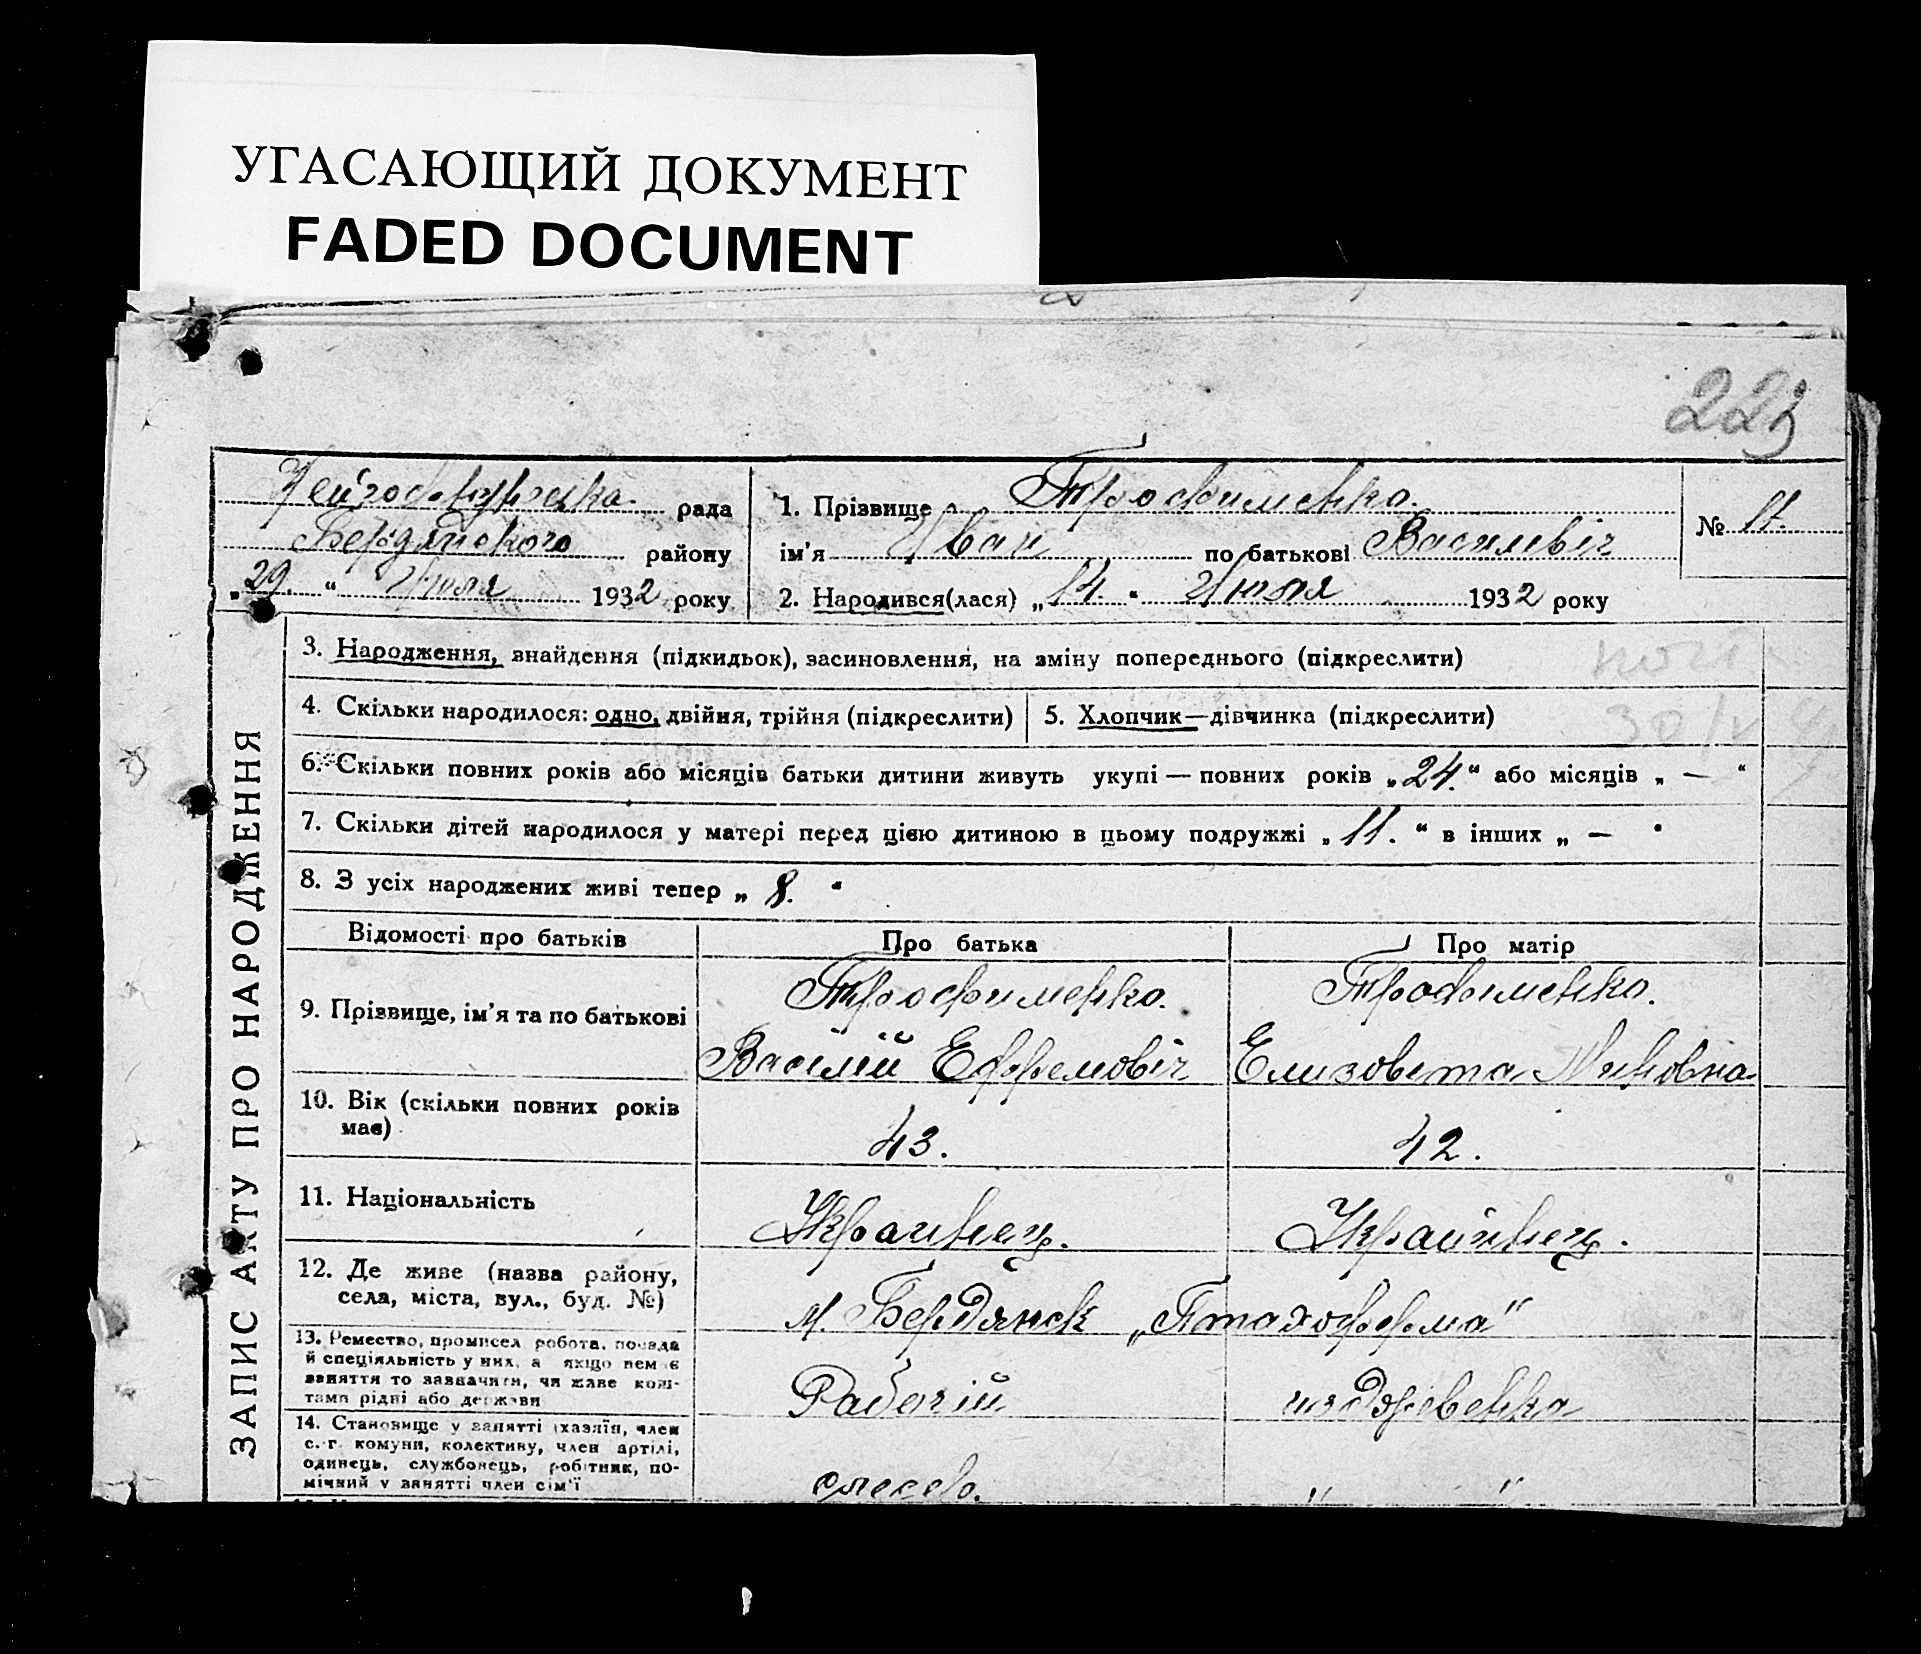 УГАСАЮЩИЙ ДОКУМЕНТ
FADED DOCUMENT
223
рада
Бердянского району
„29.“ Июля 1932 року
1. Прізвище Трофименко.
ім'я Иван по батькові Василевіч
2. Народився(лася) „14.“ Июля 1932 року
№ 17.
ЗАПИС АКТУ ПРО НАРОДЖЕННЯ
3. Народження, знайдення (підкидьок), засиновлення, на зміну попереднього (підкреслити)
4. Скільки народилося: одно, двійня, трійня (підкреслити)
5. Хлопчик—дівчинка (підкреслити)
6. Скільки повних років або місяців батьки дитини живуть укупі — повних років „24.“ або місяців „ — “
7. Скільки дітей народилося у матері перед цією дитиною в цьому подружжі „11.“ в інших „ — “
8. З усіх народжених живі тепер „8.“
Відомості про батьків
Про батька
Про матір
9. Прізвище, ім'я та по батькові
Трофименко.
Василій Ефремовіч
Трофименко.
Елизовета Миновна
10. Вік (скільки повних років
має)
43.
42.
11. Національність
Украинец.
Украйінец.
12. Де живе (назва району,
села, міста, вул., буд. №)
м. Бердянск „Птахоферма“
13. Ремество, промисел робота, посада
й спеціяльність у них, а якщо нем є
заняття то зазначити, чи живе кош-
тами рідні або держави
Рабочій
издревенка
14. Становище у занятті (хазяїн, член
с.-г. комуни, колективу, член артілі,
одинець, службовець, робітник, по-
мічний у занятті член сім'ї
слесар.
" "